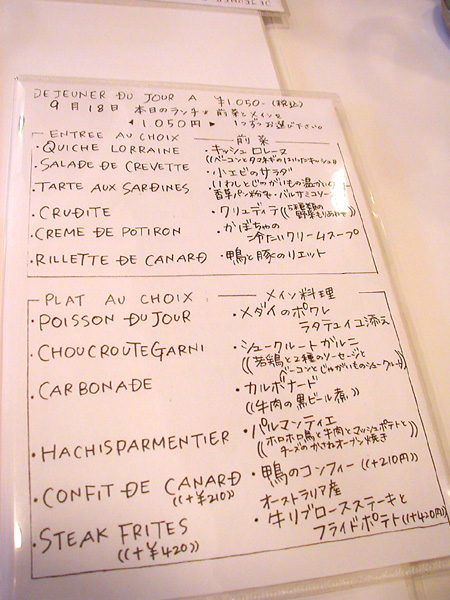 DEJEUNER DU JOUR A ¥1.050-(税込)
9月18日 本日のランチ 前菜とメインを
◀1050円▶ 1つずつお選び下さい。
ENTREE AU CHOIX 前菜
・QUICHE LORRAINE ・キッシュ ロレーヌ
((ベーコンとタマネギのはいったキッシュ))
・SALADE DE CREVETTE ・小エビのサラダ
・TARTE AUX SARDINES ・いわしとじゃがいもの温かい
香草パン粉
・CRUDITE ・クリュディテ((5種類の
野菜もりあわせ))
・CREME DE POTIRON ・かぼちゃの
冷たいクリームスープ
・RILLETTE DE CANARD ・鴨と豚のリエット
PLAT AU CHOIX メイン料理
・POISSON DU JOUR ・メダイのポワレ
ラタテュイユ添え
・CHOUCROUTE GARNI ・シュークルートガルニ
((若鶏と2種のソーセージと
ベーコンとじゃがいものシュークルート
・CARBONADE ・カルボナード
((牛肉の黒ビール煮))
・HACHISPARMENTIER ・パルマンティエ
((ホロホロ鳥と牛肉とマッシュポテトと
チーズのかさねオーブン焼き
・CONFIT DE CANARD ・鴨のコンフィー((+210円))
((+¥210))
・STEAK FRITES オーストラリア産
((+¥420)) ・牛リブロースステーキと
フライドポテト((+420円))